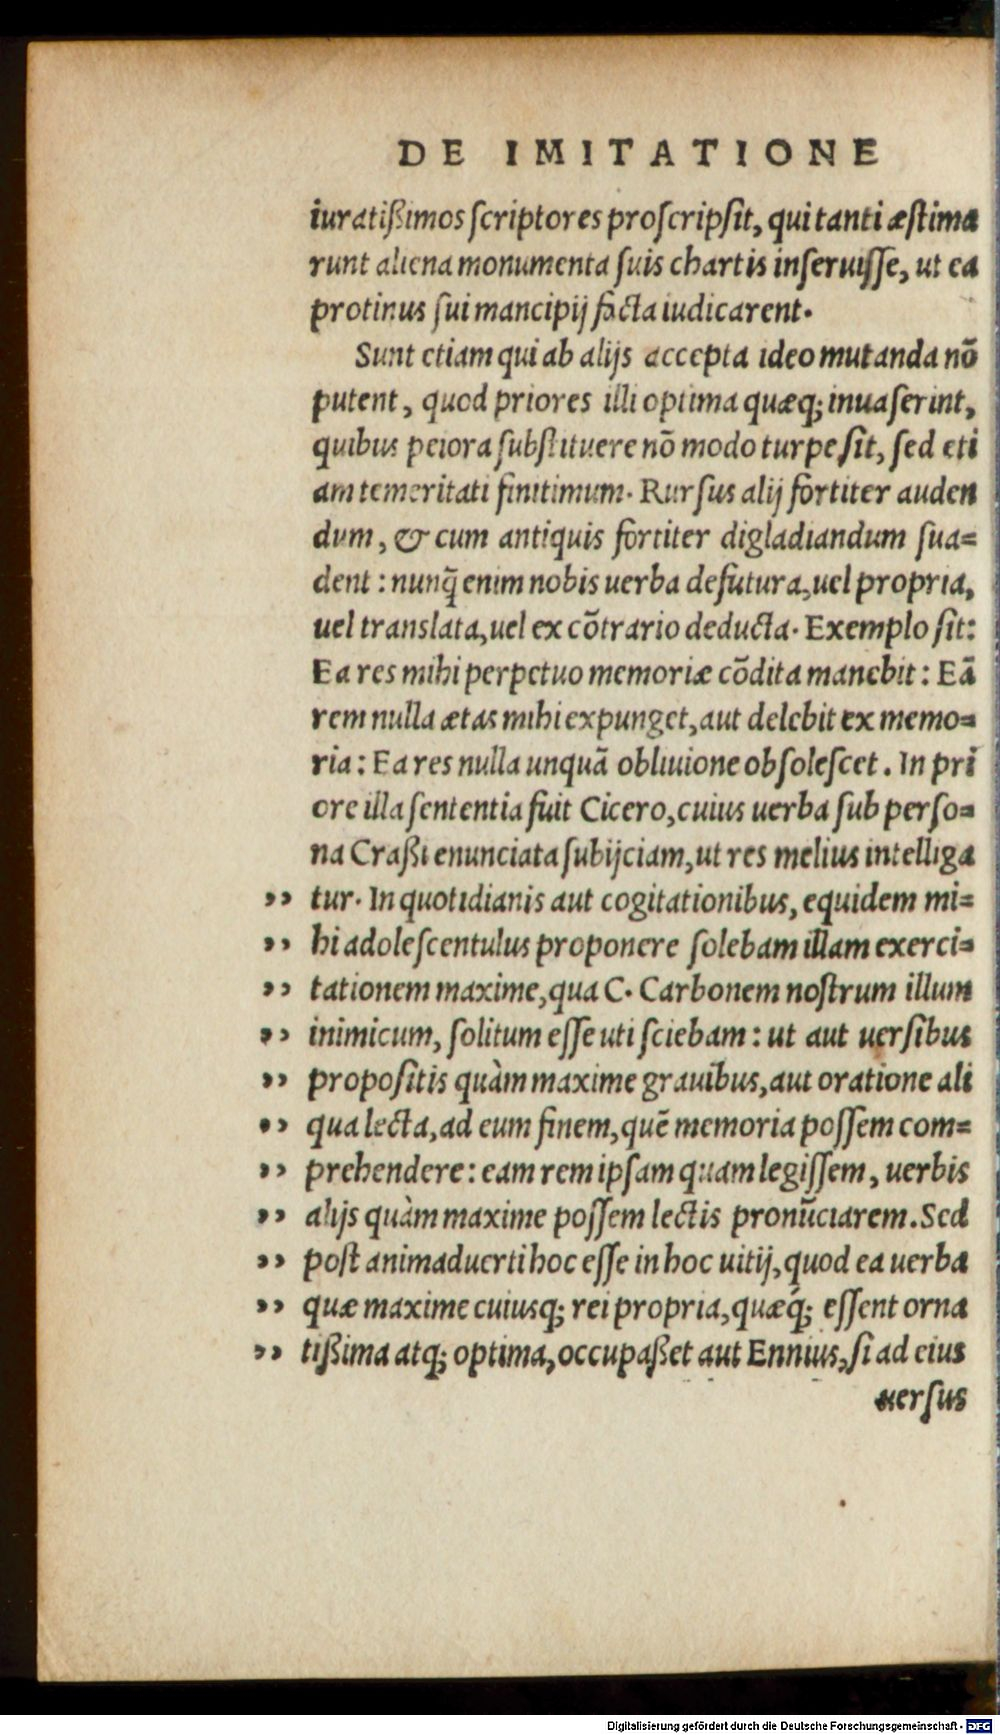 DE IMITATIONE
iuratißimos ſcriptores proſcripſit, qui tanti æſtima
runt aliena monumenta ſuis chartis inſeruiſſe, ut ea
protinus ſui mancipij facta iudicarent.
Sunt etiam qui ab alijs accepta ideo mutanda nō
putent, quod priores illi optima quæq; inuaſerint,
quibus peiora ſubſtituere nō modo turpe ſit, ſed eti
am temeritati finitimum. Rurſus alij fortiter auden
dum, & cum antiquis fortiter digladiandum ſua=
dent : nunq̃ enim nobis uerba defutura, uel propria,
uel translata, uel ex cōtrario deducta. Exemplo ſit:
Ea res mihi perpetuo memoriæ cōdita manebit : Eā
rem nulla ætas mihi expunget, aut delebit ex memo=
ria : Ea res nulla unquā obliuione obſoleſcet. In pri
ore illa ſententia fuit Cicero, cuius uerba ſub perſo=
na Craßi enunciata ſubijciam, ut res melius intelliga
„ tur. In quotidianis aut cogitationibus, equidem mi=
„ hi adoleſcentulus proponere ſolebam illam exerci=
„ tationem maxime, qua C. Carbonem noſtrum illum
„ inimicum, ſolitum eſſe uti ſciebam : ut aut uerſibus
„ propoſitis quàm maxime grauibus, aut oratione ali
„ qua lecta, ad eum finem, quē memoria poſſem com=
„ prehendere : eam rem ipſam quam legiſſem, uerbis
„ alijs quàm maxime poſſem lectis pronūciarem. Sed
„ poſt animaduerti hoc eſſe in hoc uitij, quod ea uerba
„ quæ maxime cuiusq; rei propria, quæq́; eſſent orna
„ tißima atq; optima, occupaßet aut Ennius, ſi ad eius
uerſus
Digitalisierung gefördert durch die Deutsche Forschungsgemeinschaft - DFG